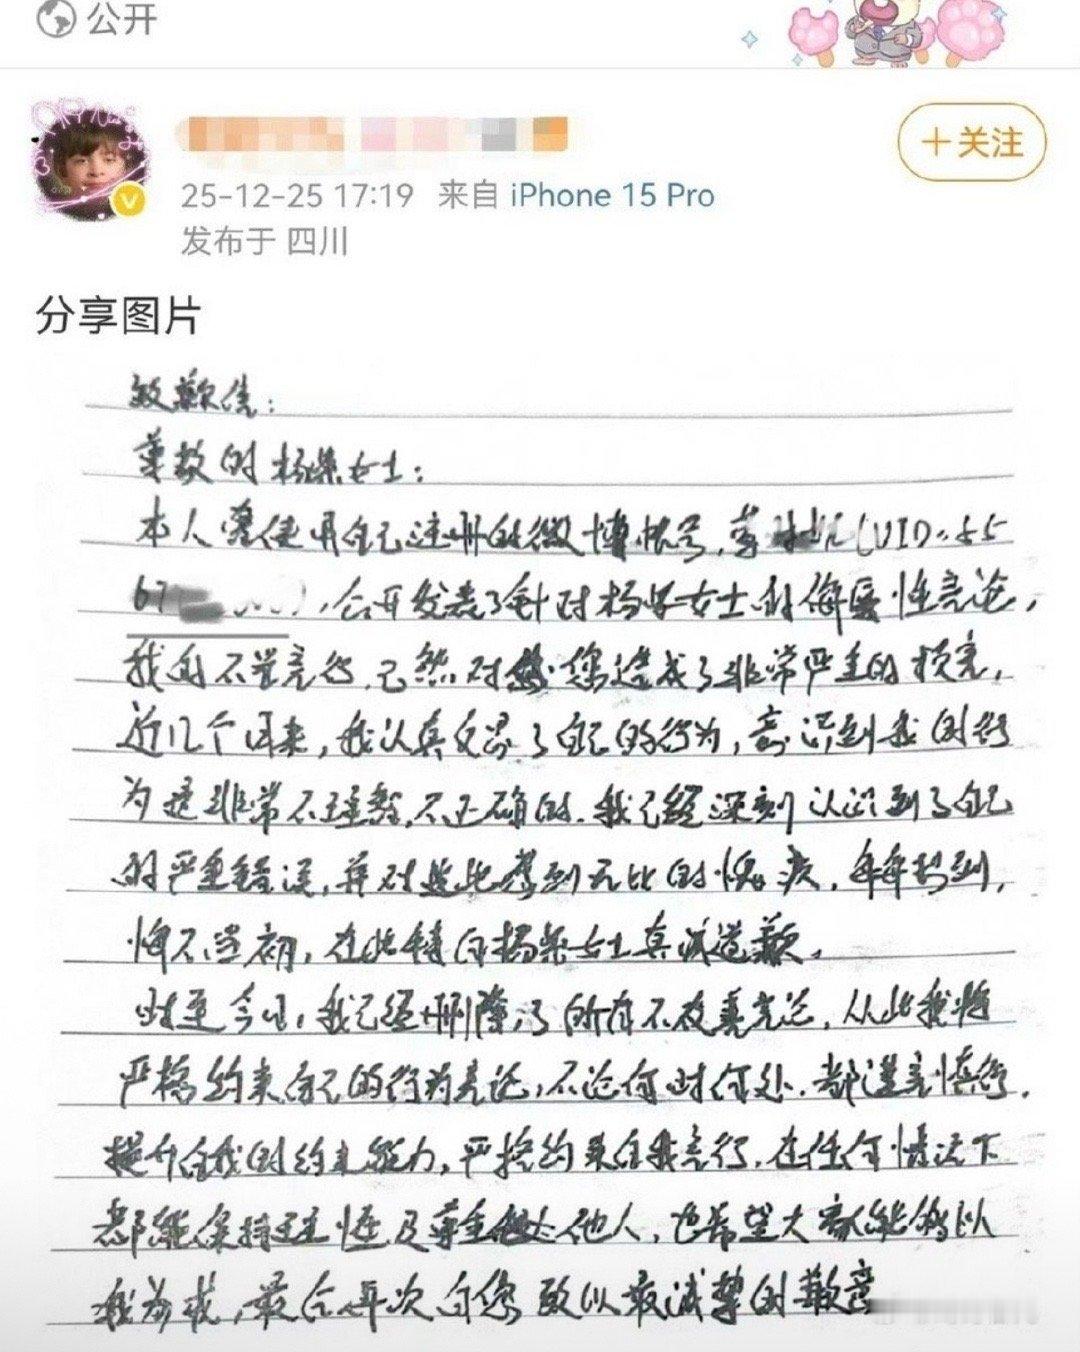 公开
+关注
25-12-25 17:19 来自 iPhone 15 Pro
发布于 四川
分享图片
致歉信:
尊敬的杨紫女士:
本人曾使用自己注册的微博帐号, (UID:55
67 ),公开发表了针对杨紫女士的侮辱性言论,
我的不当言行,已然对您造成了非常严重的损害,
近几个月来,我认真反思了自己的行为,意识到我的行
为是非常不理智,不正确的.我已经深刻认识到了自己
的严重错误,并对此感到无比的愧疚,
悔不当初,在此特向杨紫女士真诚道歉.
时至今日,我已经删除了所有不友善言论,从此我将
严格约束自己的行为言论,不论何时何处,都谨言慎行.
提升自我的约束能力,严格约束自我言行,在任何情况下
都能保持理性及尊重他人,也希望大家能够以
我为戒,最后再次向您致以最诚挚的歉意